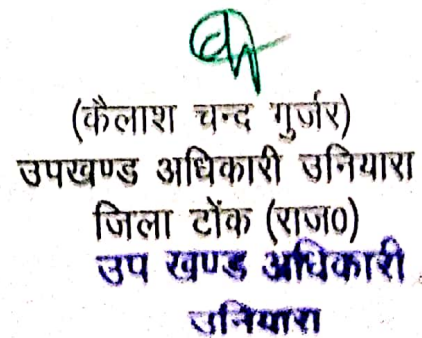 (कैलाश चन्द गुर्जर)
उपखण्ड अधिकारी उनियारा
जिला टोंक (राज0)
उप खण्ड अधिकारी
उनियारा